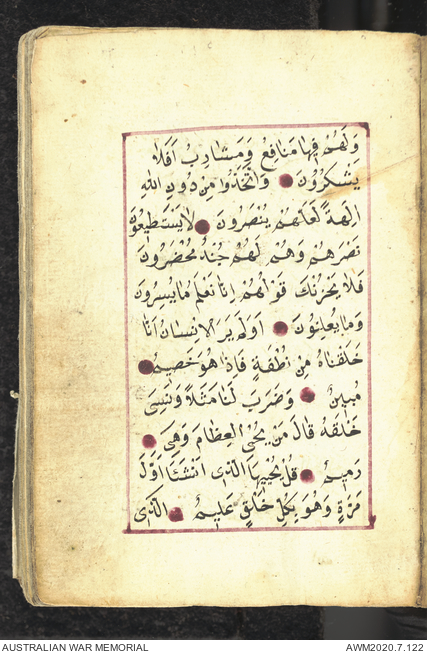 وَلَهُمْ فِيهَا مَنَافِعُ وَمَشَارِبُ اَفَلَا
يَشْكُرُونَ وَاتَّخَذُوا مِنْ دُونِ اللهِ
الِهَةً لَعَلَّهُمْ يُنْصَرُونَ لَا يَسْتَطِيعُونَ
نَصْرَهُمْ وَهُمْ لَهُمْ جُنْدٌ مُحْضَرُونَ
فَلَا يَحْزُنْكَ قَوْلُهُمْ اِنَّا نَعْلَمُ مَا يُسِرُّونَ
وَمَا يُعْلِنُونَ اَوَلَمْ يَرَ الْاِنْسَانُ اَنَّا
خَلَقْنَاهُ مِنْ نُطْفَةٍ فَاِذَا هُوَ خَصِيمٌ
مُبِينٌ وَضَرَبَ لَنَا مَثَلًا وَنَسِىَ
خَلْقَهُ قَالَ مَنْ يُحْيِى الْعِظَامَ وَهِىَ
رَمِيمٌ قُلْ يُحْيِيهَا الَّذِى اَنْشَأَهَا اَوَّلَ
مَرَّةٍ وَهُوَ بِكُلِّ خَلْقٍ عَلِيمٌ الَّذِى
AUSTRALIAN WAR MEMORIAL
AWM2020.7.122